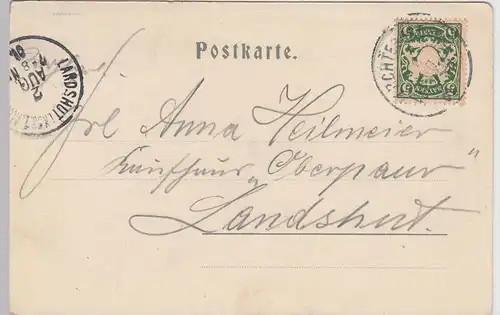 Postkarte.
LANDSHUT
2
AUG
Frl Anna Heilmeier
Kaufhaus „Oberpaur“
Landshut.